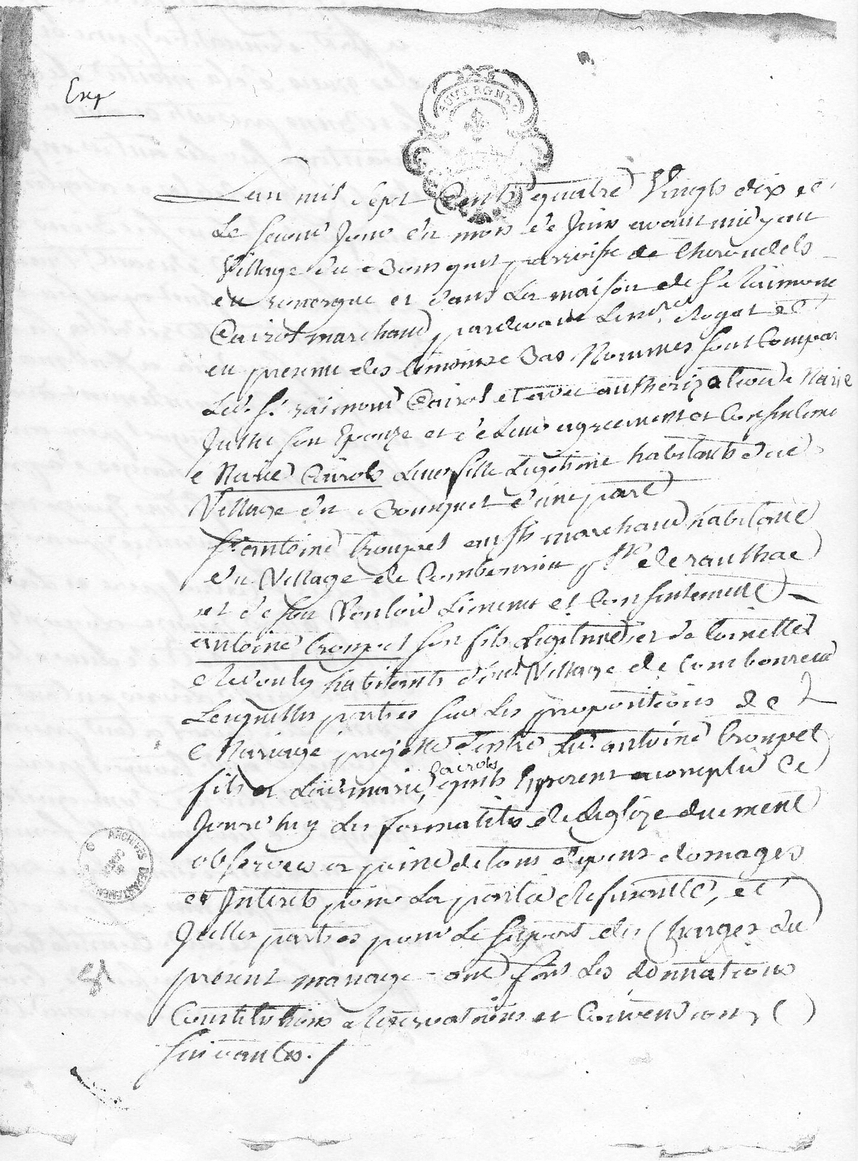 Exp
ROUERGUE
Lan mil sept Cents quatre Vingts dix et
Le jour du mois de Juin avant midy au
Village du Bousquet parroisse de
en rouergue et dans La maison de Sr. Raimond
Cairol marchand, pardevant Le nore. Royal et
en presence des temoins Bas Nommés sont Compar
Led. Sr. raimond Cairol et avec authorization de Marie
son Epouze et de Leur agreement et Consenteme
Marie Cairols Leur fille Legitime habitants dud.
Village du Bousquet d'une part
Sr. antoine Croupet marchand habitant
du Village de psse. de raulhac
et de son Vouloir Licence et Consentement
antoine Croupet son fils Legitime et de Toinette
habitants dud. Village de
Lesquelles parties sur Les propositions de
Mariage projetté d'entre Led. antoine Croupet
Cairols
fils et Lad. marie, quils seront accomplir Ce
Jourd'huy Les formalités de Leglize duement
observées a peine de tous depens domages
et Interets pour La partie refusante, et
Icelles parties pour Le suport des Charges du
present mariage ont fait Les donnations
Constitutions reservations et Conventions
suivantes. /
ARCHIVES DEPARTEMENTALES